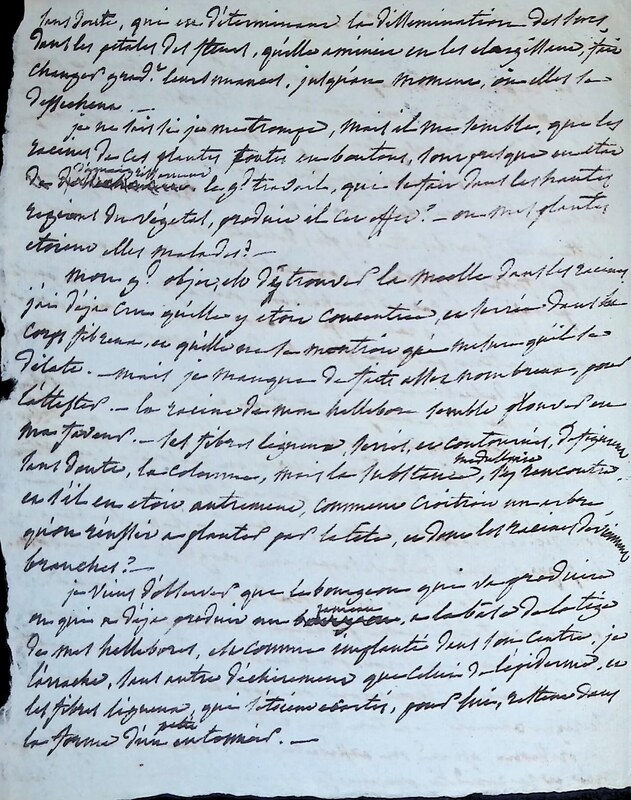 sans doute, qui en déterminant la dissémination des sucs
dans les pétales des fleurs, qu'elle amincit en les élargissant, fait
changer grad.t leurs nuances, jusqu'au moment, où elles se
dessechent. —
je ne sais si je me trompe, mais il me semble, que les
racines de ces plantes toutes en boutons, sont presque en état
de le gd travail, qui se fait dans les hautes
regions du végétal, produit il cet effet? — ou mes plantes
etoient elles malades? —
mon gd objet, est d'y trouver la moelle dans les racines
j'ai déja cru qu'elle y etoit concentrée, et serrée dans le
corps fibreux, et qu'elle ne se montroit qu'à mesure qu'il se
dilate. — mais je manque de faits assez nombreux, pour
l'attester. — la racine de mon hellebore semble prouver en
ma faveur. — ses fibres ligneux, serrés, et contournés, défigurent
sans doute, la colonne, mais la substance medullaire, s'y rencontre.
et s'il en etoit autrement, comment croitroit un arbre
qu'on réussit a planter par la tete, et dont les racines deviennent
branches? —
je viens d'observer que le bourgeon qui va produire
ou qui a déja produit une bourgeon, a la base de la tige
de mes hellebores, est comme implanté dans son centre, je
l'arrache, sans autre déchirement que celui de l'épiderme, et
les fibres ligneux, qui s'etoient ecartés, pour lui, restent dans
la forme d'un petit entonnoir. —